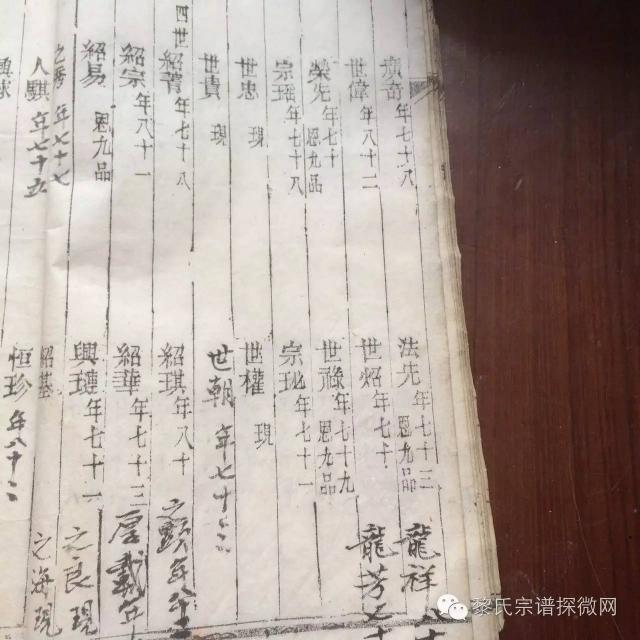 年七十八
法先年七十三恩九品
龍祥
世偉年八十二
世炤年七十
龍芳
榮先年七十恩九品
世祿年七十九恩九品
宗珏年七十八
宗玭年七十一
世忠現
世權現
世貴現
世朝年七十三
四世
紹菁年七十八
紹琪年八十
之
紹宗年八十一
紹華年七十三
厚載年
紹易恩九品
興璉年七十一
之良現
之海年七十七
紹基
之海現
人驥年七十五
恒珍年八十二
黎氏宗谱探微网